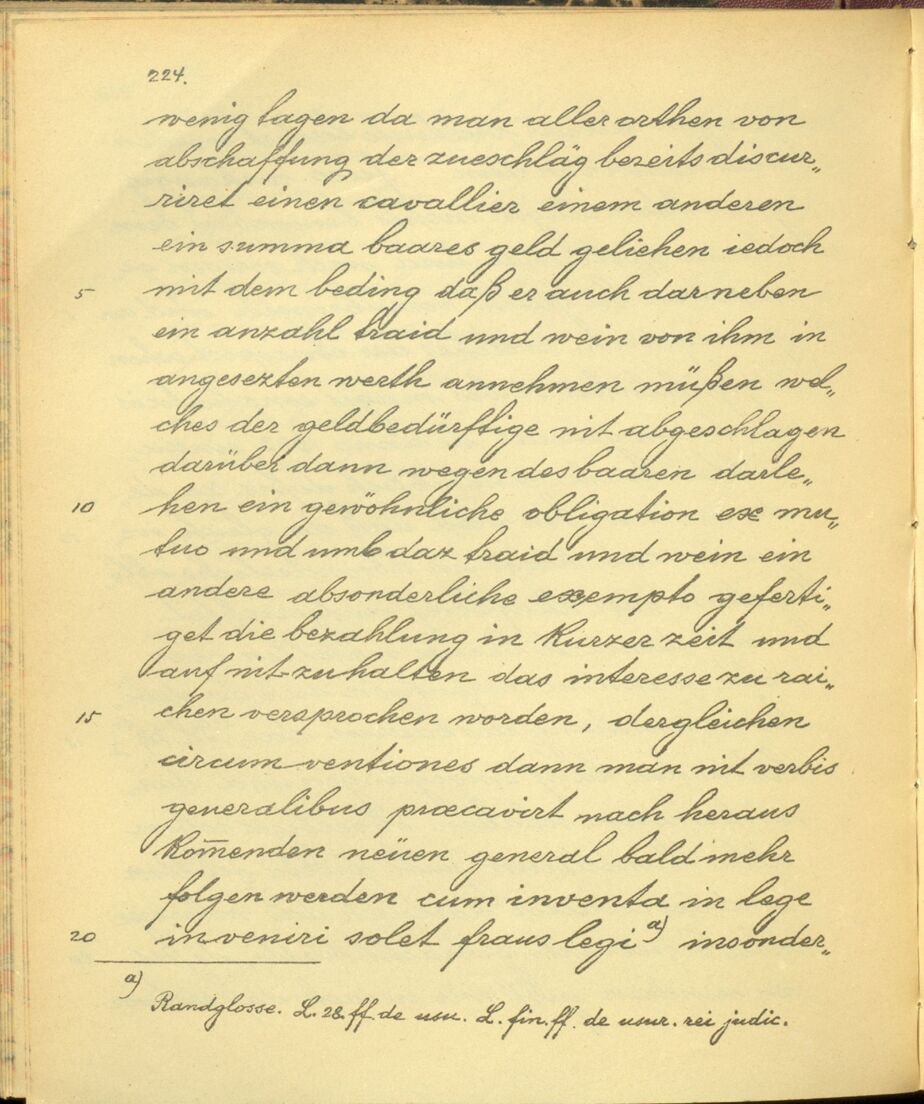 224.
wenig tagen da man aller orthen von
abschaffung der zueschläg bereits discur„
riret einen cavallier einem anderen
ein summa baares geld geliehen iedoch
5 mit dem beding daß er auch darneben
ein anzahl traid und wein von ihm in
angesezten werth annehmen müßen wel„
ches der geldbedürfftige nit abgeschlagen
darüber dann wegen des baaren darle„
10 hen ein gewöhnliche obligation ex mu„
tuo und umb daz traid und wein ein
andere absonderliche exempto geferti„
get die bezahlung in kurzer zeit und
auf nit zuhalten das interesse zu rai„
15 chen versprochen worden, dergleichen
circum ventiones dann man nit verbis
generalibus præcavirt nach heraus
kom̅enden neüen general bald mehr
folgen werden cum inventa in lege
20 inveniri solet fraus legi a) insonder„
a)
Randglosse. L. 28. ff. de usu. L. fin. ff. de usur. rei judic.